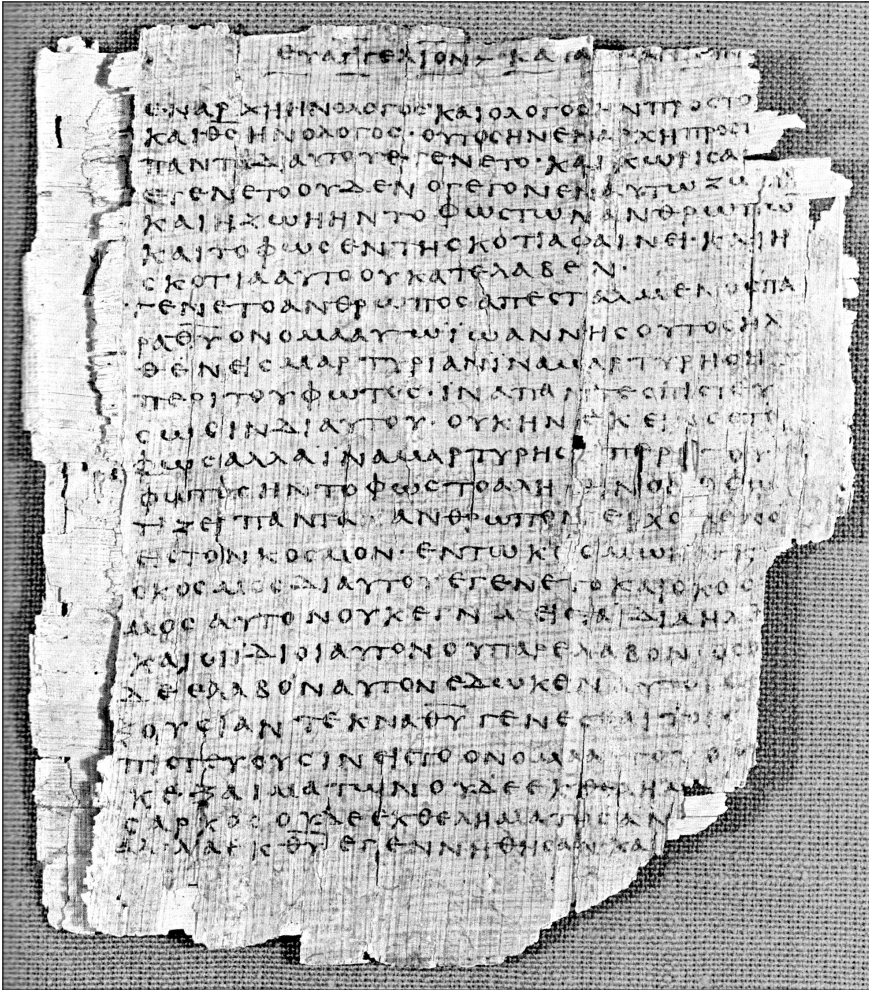 ΕΥΑΓΓΕΛΙΟΝ ΚΑΤΑ
ΕΝΑΡΧΗΗΝΟΛΟΓΟϹ·ΚΑΙΟΛΟΓΟϹΗΝΠΡΟϹΤΟ
ΚΑΙΘ̅Ϲ̅ΗΝΟΛΟΓΟϹ·ΟΥΤΟϹΗΝΕΝΑΡΧΗΠΡΟϹΤ
ΠΑΝΤΑΔΙΑΥΤΟΥΕΓΕΝΕΤΟ·ΚΑΙΧΩΡΙϹΑ
ΕΓΕΝΕΤΟΟΥΔΕΝΟΓΕΓΟΝΕΝΑΥΤΩΖΩΗ
ΚΑΙΗΖΩΗΗΝΤΟΦΩϹΤΩΝΑΝΘΡΩΠΩ
ΚΑΙΤΟΦΩϹΕΝΤΗϹΚΟΤΙΑΦΑΙΝΕΙ·ΚΑΙΗ
ϹΚΟΤΙΑΑΥΤΟΟΥΚΑΤΕΛΑΒΕΝ·
ΓΕΝΕΤΟΑΝΘΡΩΠΟϹΑΠΕϹΤΑΛΜΕΝΟϹΠΑ
ΡΑΘ̅Υ̅ΟΝΟΜΑΑΥΤΩΙΩΑΝΝΗϹΟΥΤΟϹΗΛ
ΘΕΝΕΙϹΜΑΡΤΥΡΙΑΝΙΝΑΜΑΡΤΥΡΗϹΗ
ΠΕΡΙΤΟΥΦΩΤΟϹ·ΙΝΑΠΑΝΤΕϹΠΙϹΤΕΥ
ϹΩϹΙΝΔΙΑΥΤΟΥ·ΟΥΚΗΝΕΚΕΙΝΟϹΤΟ
ΦΩϹΑΛΛΑΙΝΑΜΑΡΤΥΡΗϹΗΠΕΡΙΤΟΥ
ΦΩΤΟϹΗΝΤΟΦΩϹΤΟΑΛΗΘΙΝΟΝΟΦΩ
ΤΙΖΕΙΠΑΝΤΑΑΝΘΡΩΠΟΝΕΡΧΟΜΕΝΟ
ΕΙϹΤΟΝΚΟϹΜΟΝ·ΕΝΤΩΚΟϹΜΩΗΝΚ
ΟΚΟϹΜΟϹΔΙΑΥΤΟΥΕΓΕΝΕΤΟΚΑΙΟΚΟϹ
ΜΟϹΑΥΤΟΝΟΥΚΕΓΝΩΕΙϹΤΑΙΔΙΑΗΛΘ
ΚΑΙΟΙΙΔΙΟΙΑΥΤΟΝΟΥΠΑΡΕΛΑΒΟΝΟϹΟ
ΔΕΕΛΑΒΟΝΑΥΤΟΝΕΔΩΚΕΝΑΥΤΟΙϹ
ΞΟΥϹΙΑΝΤΕΚΝΑΘ̅Υ̅ΓΕΝΕϹΘΑΙΤΟΙϹ
ΠΙϹΤΕΥΟΥϹΙΝΕΙϹΤΟΟΝΟΜΑΑΥΤΟΥ
ΚΕΞΑΙΜΑΤΩΝΟΥΔΕΕΚΘΕΛΗΜΑ
ϹΑΡΚΟϹΟΥΔΕΕΚΘΕΛΗΜΑΤΟϹΑΝ
ΑΛΛΑΕΚΘ̅Υ̅ΕΓΕΝΝΗΘΗϹΑΝ·ΚΑ